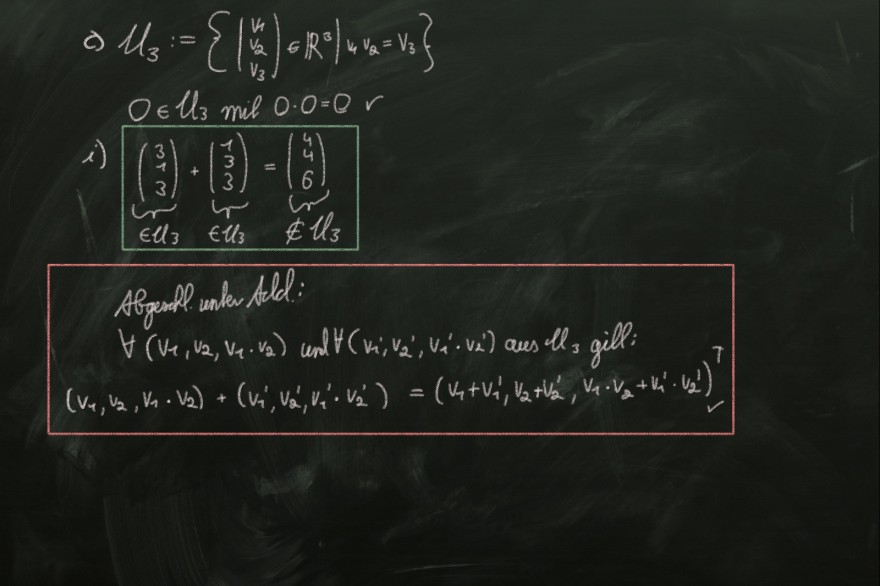 c) U₃ := { (v₁ v₂ v₃) ∈ ℝ³ | v₁ v₂ = v₃ }
0 ∈ U₃ mit 0·0=0 ✓
i) (3 1 3) + (1 3 3) = (4 4 6)
∈U₃ ∈U₃ ∉ U₃
Abgeschl. unter Add.:
∀ (v₁, v₂, v₁·v₂) und ∀ (v₁', v₂', v₁'·v₂') aus U₃ gilt:
(v₁, v₂, v₁·v₂) + (v₁', v₂', v₁'·v₂') = (v₁+v₁', v₂+v₂', v₁·v₂+v₁'·v₂')ᵀ ✓